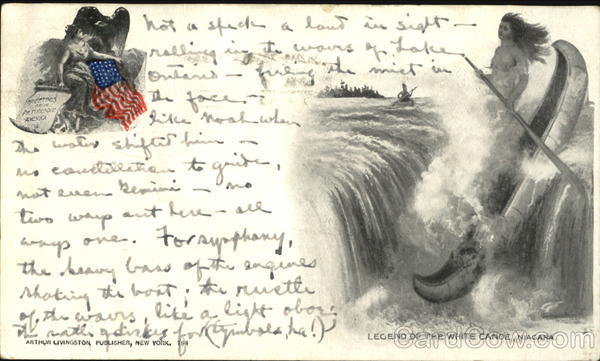 Not a speck a land in sight —
rolling in the waves of Lake
Ontario — feeling the mist in
the face —
like Noah when
the water shifted him —
no constellation to guide,
not even Gemini — no
two ways out here — all
ways one. For symphony,
the heavy bass of the engines
shaking the boat; the rustle
of the waves, like a light oboe;
the rattle of dishes for (Cymbals, ha!)
GREETINGS
FROM
PICTURESQUE
AMERICA
ARTHUR LIVINGSTON, PUBLISHER, NEW YORK. 194
LEGEND OF THE WHITE CANOE, NIAGARA
CardCow.com